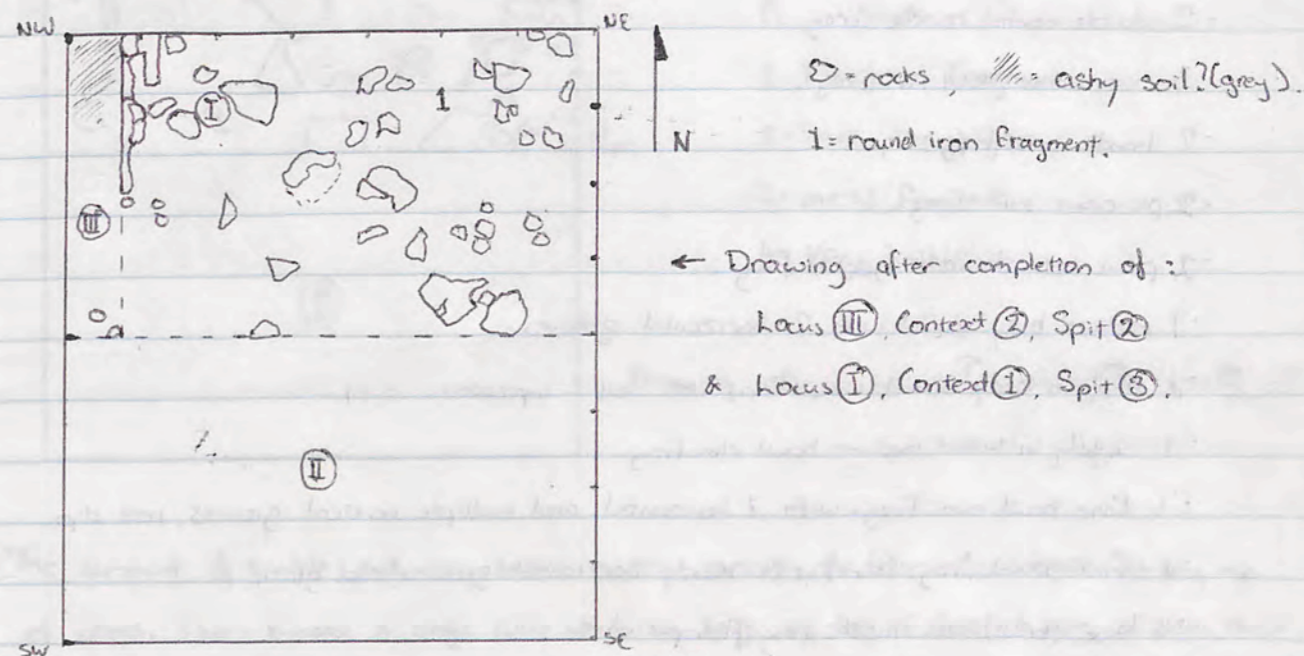 NW NE
= rocks, = ashy soil? (grey).
1 = round iron fragment.
N
I
1
III
← Drawing after completion of :
Locus III, Context 2, Spit 2
& Locus I, Context 1, Spit 3.
II
SW SE